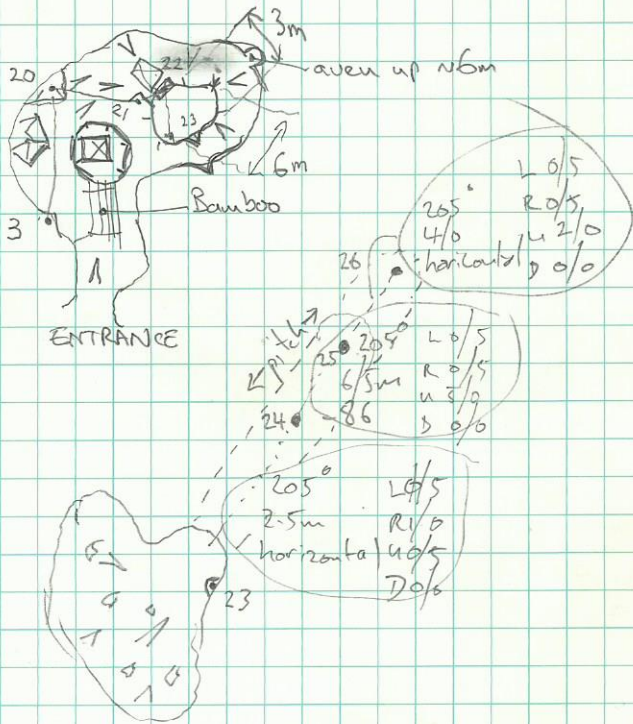 3m
20
22
aven up ~6m
21
23
6m
Bamboo
3
ENTRANCE
205°
4/0
horizontal
L 0/5
R 0/5
u 2/0
D 0/0
26
pitch
25
205°
6/5m
86
L 0/5
R 0/5
D 0/0
24
205°
2.5m
horizontal
L0/5
R1/0
u0/5
D0/0
23